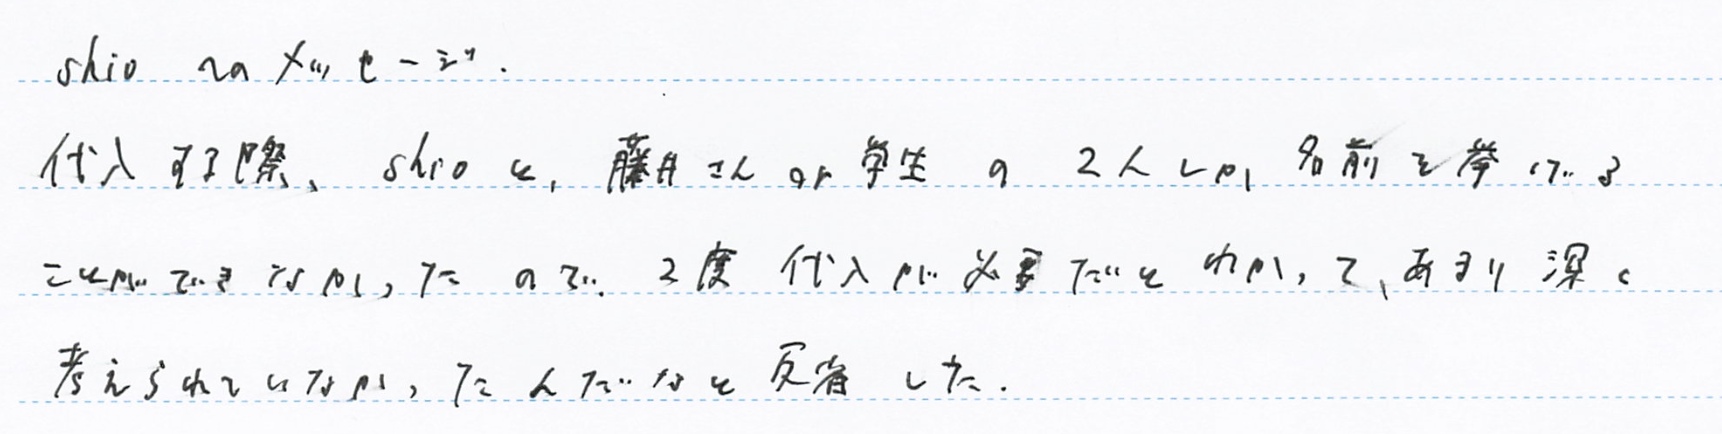 shio へのメッセージ.
代入する際、shioと、藤井さん or 学生 の 2人しか、名前を挙げる
ことができなかったので、2度 代入が必要だとわかって、あまり深く
考えられていなかったんだなと反省した.